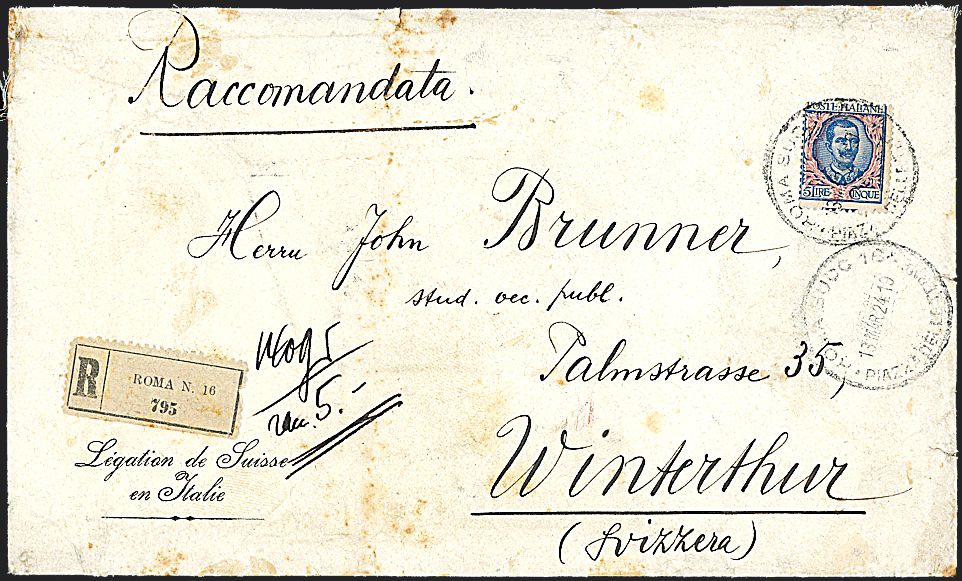 Raccomandata.
POSTE·ITALIANE
5 LIRE CINQUE
ROMA SUCC 16
13 MAR 24 · 10
PIAZZA DELLE
Herrn John Brunner,
stud. oec. publ.
Palmstrasse 35,
Winterthur
(Svizzera)
R
ROMA N. 16
795
rac. 5.-
Légation de Suisse
en Italie